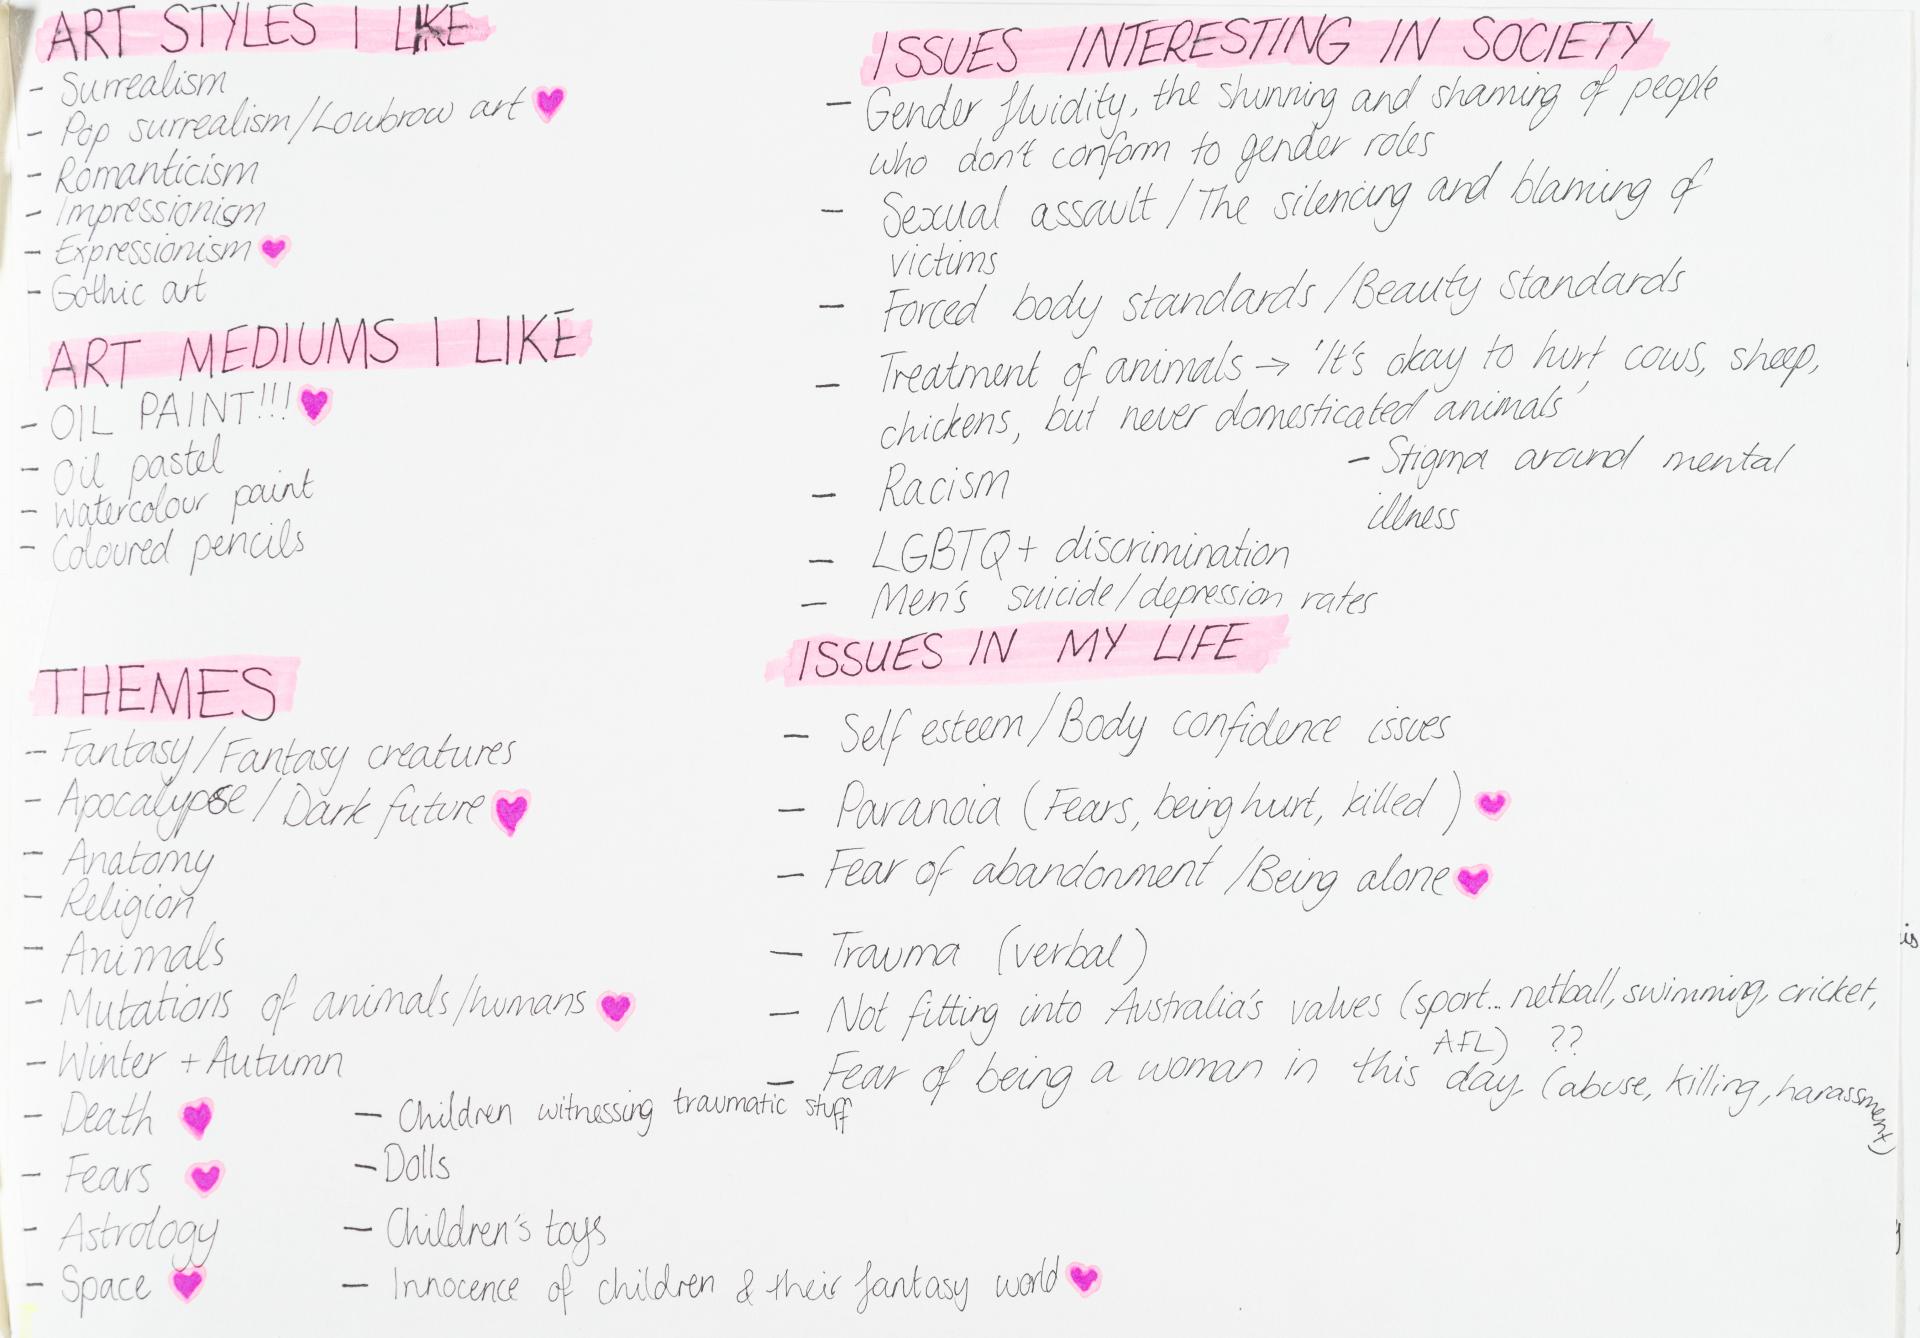 ART STYLES I LIKE
- Surrealism
- Pop surrealism/Lowbrow art
- Romanticism
- Impressionism
- Expressionism
- Gothic art
ART MEDIUMS I LIKE
- OIL PAINT!!!
- Oil pastel
- Watercolour paint
- Coloured pencils
THEMES
- Fantasy/Fantasy creatures
- Apocalypse/Dark future
- Anatomy
- Religion
- Animals
- Mutations of animals/humans
- Winter + Autumn
- Death
- Fears
- Astrology
- Space
- Children witnessing traumatic stuff
- Dolls
- Children's toys
- Innocence of children & their fantasy world
ISSUES INTERESTING IN SOCIETY
- Gender fluidity, the shunning and shaming of people
who don't conform to gender roles
- Sexual assault/The silencing and blaming of
victims
- Forced body standards/Beauty standards
- Treatment of animals → 'It's okay to hurt cows, sheep,
chickens, but never domesticated animals'
- Racism
- Stigma around mental
illness
- LGBTQ+ discrimination
- Men's suicide/depression rates
ISSUES IN MY LIFE
- Self esteem/Body confidence issues
- Paranoia (Fears, being hurt, killed)
- Fear of abandonment/Being alone
- Trauma (verbal)
- Not fitting into Australia's values (sport... netball, swimming, cricket,
AFL) ??
- Fear of being a woman in this day (abuse, killing, harassment)
is